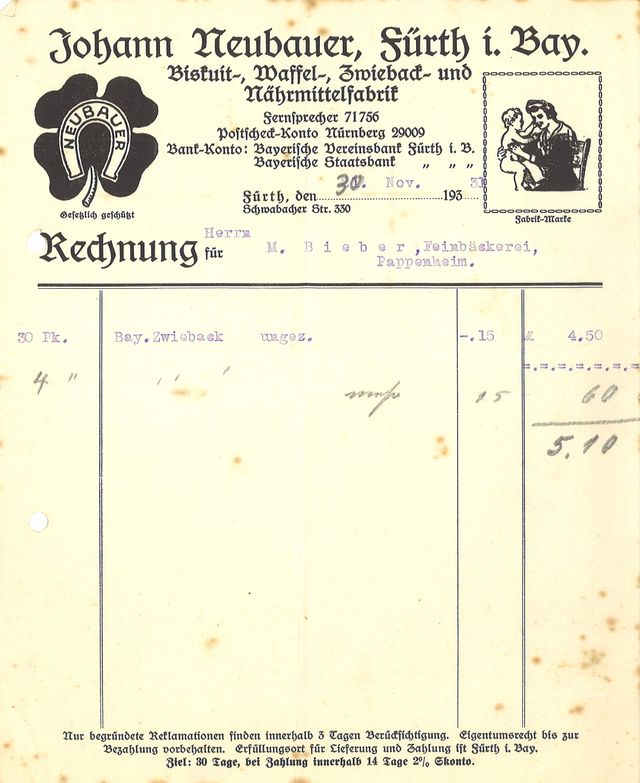 Johann Neubauer, Fürth i. Bay.
Biskuit-, Waffel-, Zwieback- und
Nährmittelfabrik
NEUBAUER
Gesetzlich geschützt
Fernsprecher 71756
Postscheck-Konto Nürnberg 29009
Bank-Konto: Bayerische Vereinsbank Fürth i. B.
Bayerische Staatsbank " " "
Fürth, den 30. Nov. 1931
Schwabacher Str. 330
Fabrik-Marke
Rechnung für
Herrn
M. B i e b e r ,Feinbäckerei,
Pappenheim.
30 Pk. Bay.Zwieback ungez. -.15 M 4.50
-.-.-.-.-.-.-
4 " " " mehr 15 60
5.10
Nur begründete Reklamationen finden innerhalb 3 Tagen Berücksichtigung. Eigentumsrecht bis zur
Bezahlung vorbehalten. Erfüllungsort für Lieferung und Zahlung ist Fürth i. Bay.
Ziel: 30 Tage, bei Zahlung innerhalb 14 Tage 2% Skonto.